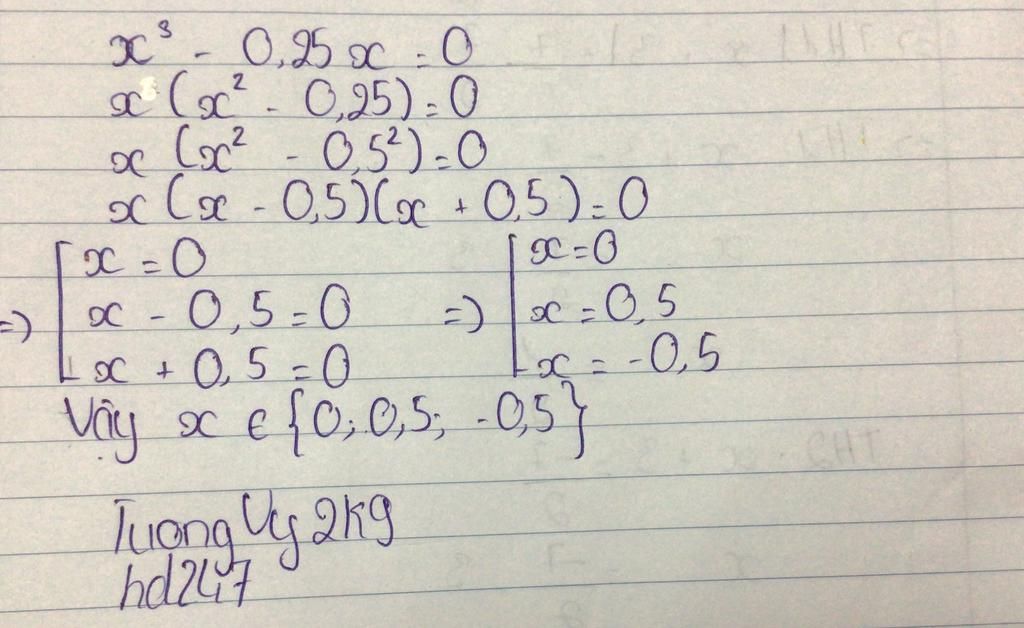 x³ - 0,25x = 0
x(x² - 0,25) = 0
x(x² - 0,5²) = 0
x(x - 0,5)(x + 0,5) = 0
x = 0 x = 0
=> x - 0,5 = 0 => x = 0,5
x + 0,5 = 0 x = -0,5
Vậy x ∈ {0; 0,5; -0,5}
TuongVy2k9
hd247